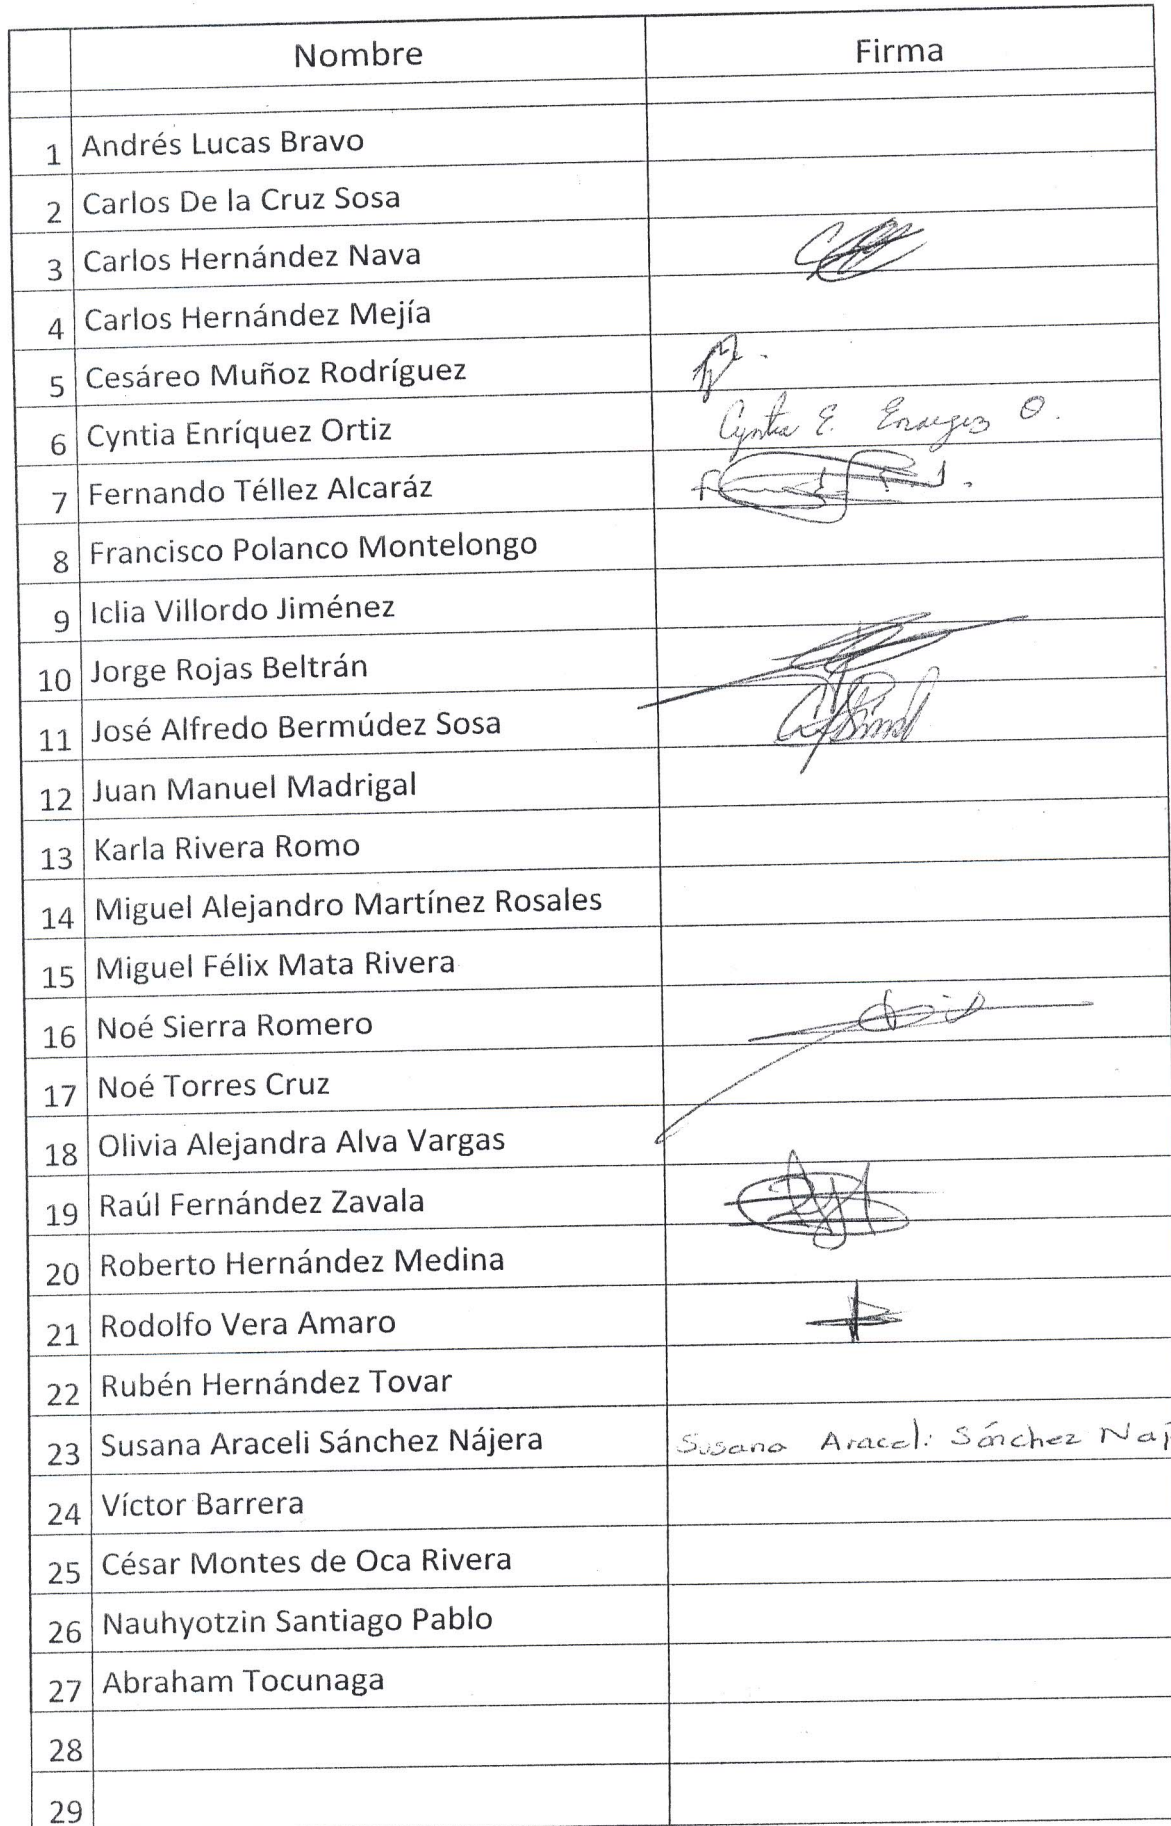 Nombre Firma
1 Andrés Lucas Bravo
2 Carlos De la Cruz Sosa
3 Carlos Hernández Nava
4 Carlos Hernández Mejía
5 Cesáreo Muñoz Rodríguez
6 Cyntia Enríquez Ortiz Cyntia E. Enríquez O.
7 Fernando Téllez Alcaráz
8 Francisco Polanco Montelongo
9 Iclia Villordo Jiménez
10 Jorge Rojas Beltrán
11 José Alfredo Bermúdez Sosa
12 Juan Manuel Madrigal
13 Karla Rivera Romo
14 Miguel Alejandro Martínez Rosales
15 Miguel Félix Mata Rivera
16 Noé Sierra Romero
17 Noé Torres Cruz
18 Olivia Alejandra Alva Vargas
19 Raúl Fernández Zavala
20 Roberto Hernández Medina
21 Rodolfo Vera Amaro
22 Rubén Hernández Tovar
23 Susana Araceli Sánchez Nájera Susana Araceli Sánchez Naj
24 Víctor Barrera
25 César Montes de Oca Rivera
26 Nauhyotzin Santiago Pablo
27 Abraham Tocunaga
28
29